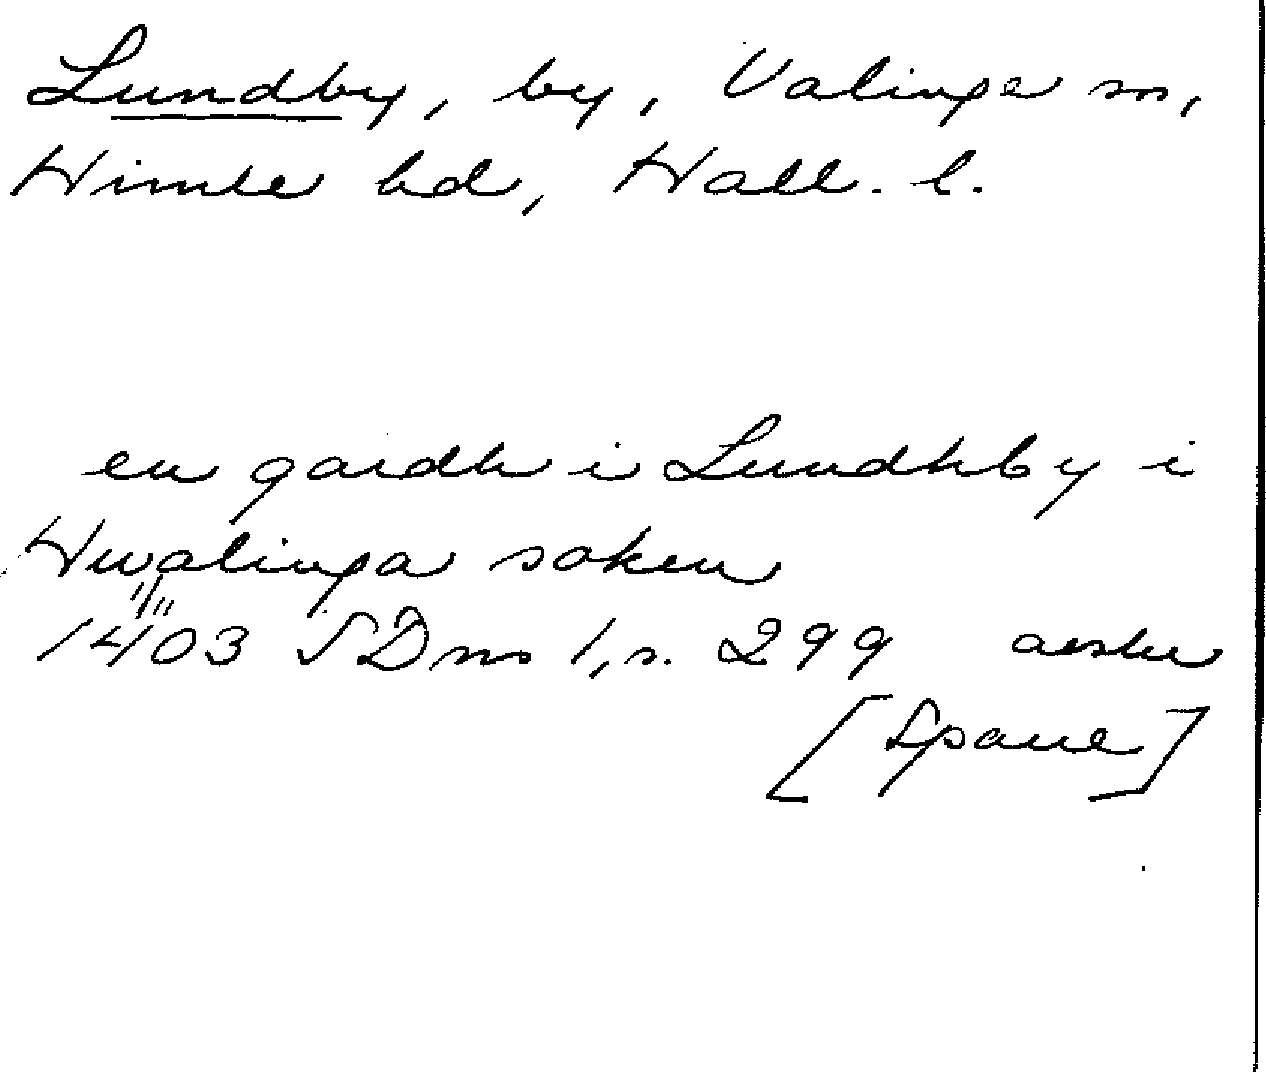 Lundby, by, Valinge sn,
Himle hd, Hall. l.
en gardh i Lundhby i
Hwalinga soken
11/11
1403 SDns 1, s. 299 avskr